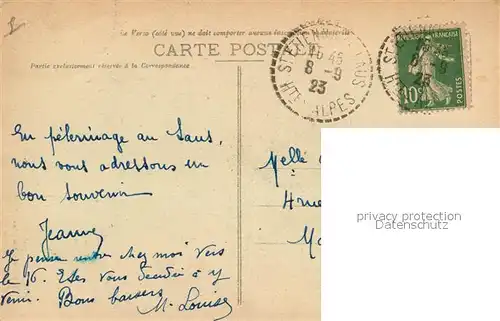 Le Verso (côté vue) ne doit comporter aucune
CARTE POST
Partie exclusivement réservée à la Correspondance
16 45
8 - 9
23
HTES ALPES
FRANÇAISE
10c
POSTES
En pèlerinage au Laus,
nous vous adressons un
bon souvenir
Jeanne
Je pense rentrer chez moi vers
le 16. Etes vous décidée à y
venir. Bons baisers
M. Louise
Melle
4 rue
privacy protection
Datenschutz